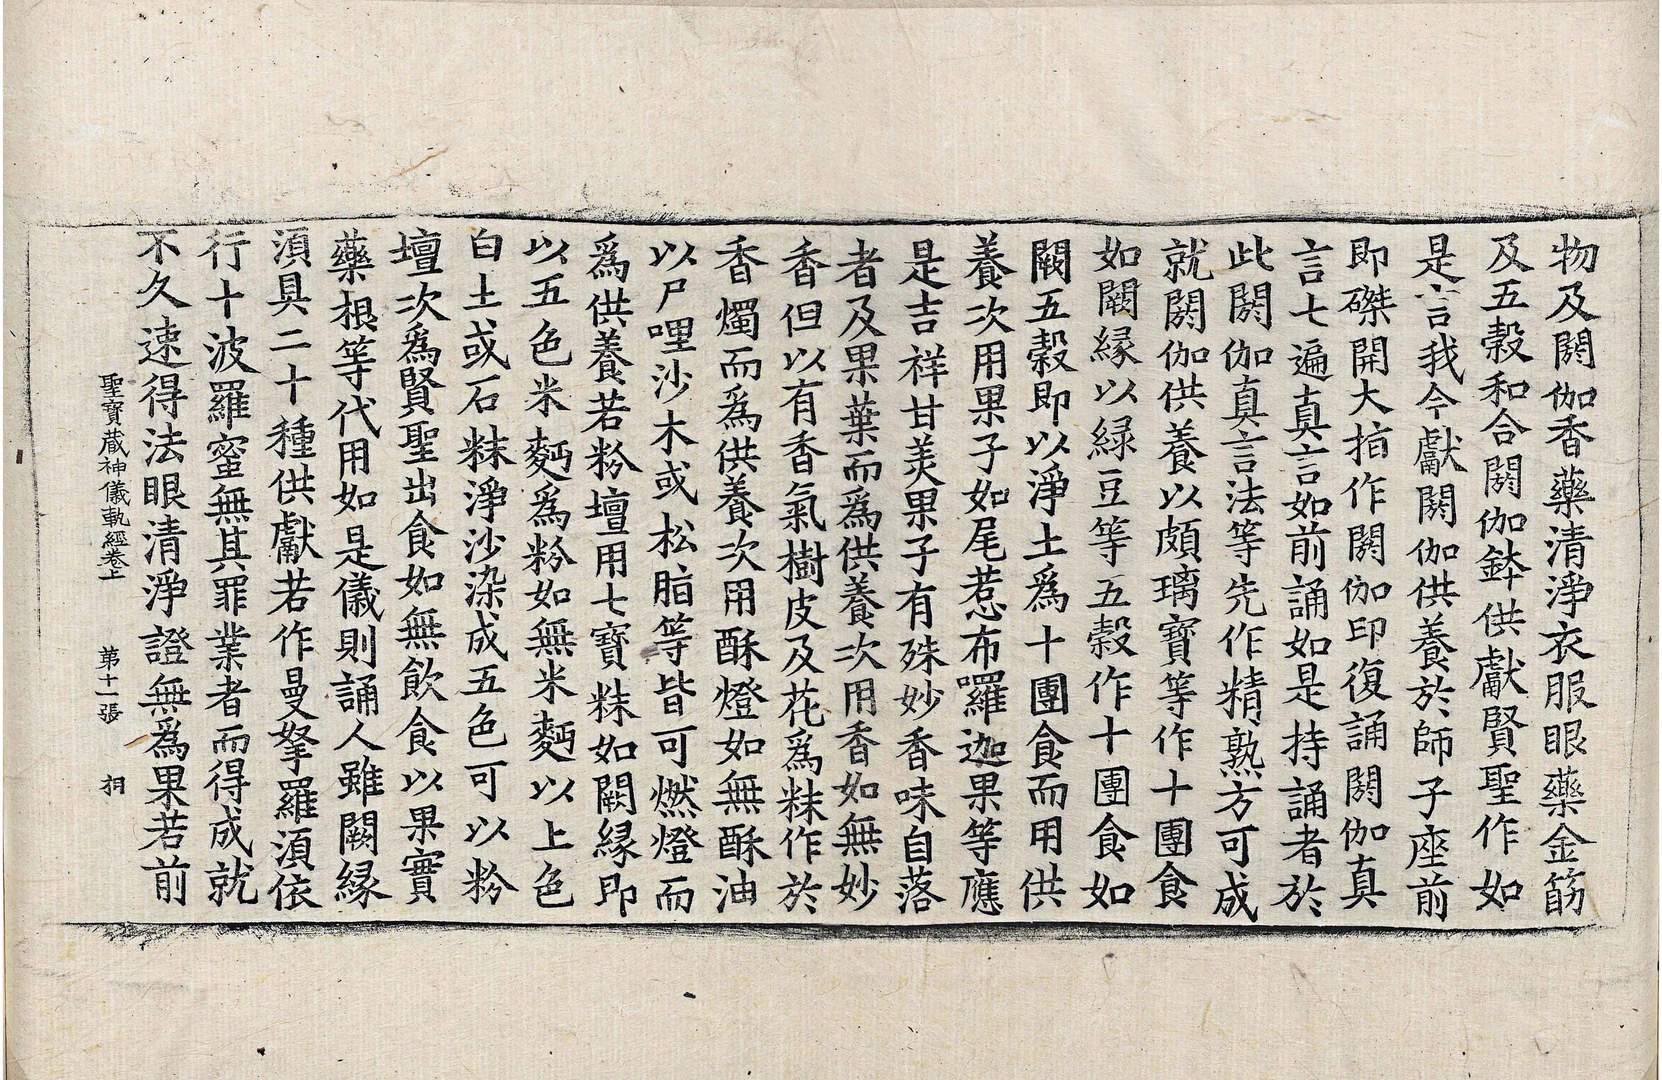 物及閼伽香藥清淨衣服眼藥金筯
及五穀和合閼伽鉢供獻賢聖作如
是言我今獻閼伽供養於師子座前
即磔開大指作閼伽印復誦閼伽真
言七遍真言如前誦如是持誦者於
此閼伽真言法等先作精熟方可成
就閼伽供養以頗璃寶等作十團食
如闕緣以綠豆等五穀作十團食如
闕五穀即以淨土爲十團食而用供
養次用果子如尾惹布囉迦果等應
是吉祥甘美果子有殊妙香味自落
者及果葉而爲供養次用香如無妙
香但以有香氣樹皮及花爲粖作於
香燭而爲供養次用酥燈如無酥油
以尸哩沙木或松脂等皆可燃燈而
爲供養若粉壇用七寶粖如闕緣即
以五色米麪爲粉如無米麪以上色
白土或石粖淨沙染成五色可以粉
壇次爲賢聖出食如無飲食以果實
藥根等代用如是儀則誦人雖闕緣
湏具二十種供獻若作曼拏羅湏依
行十波羅蜜無其罪業者而得成就
不久速得法眼清淨證無爲果若前
聖寶蔵神儀軌經卷上 第十一張